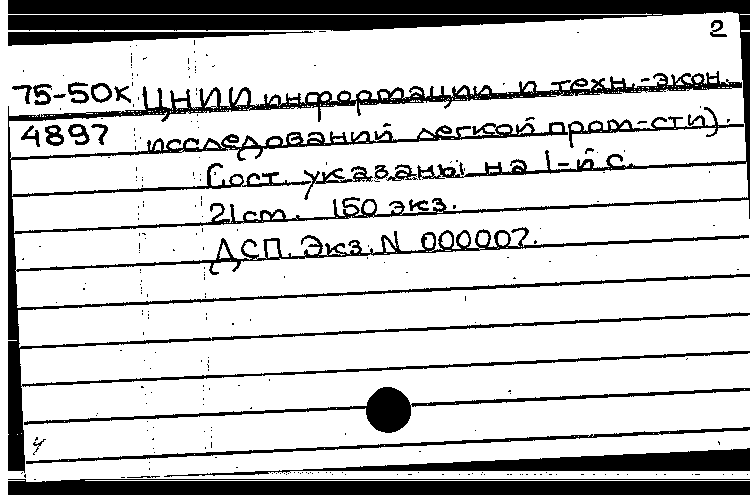 2
75-50к ЦНИИ информации и техн.-экон.
4897 исследований легкой пром-сти).
Сост. указаны на 1-й с.
21см. 150 экз.
ДСП. Экз. N 000007.
4